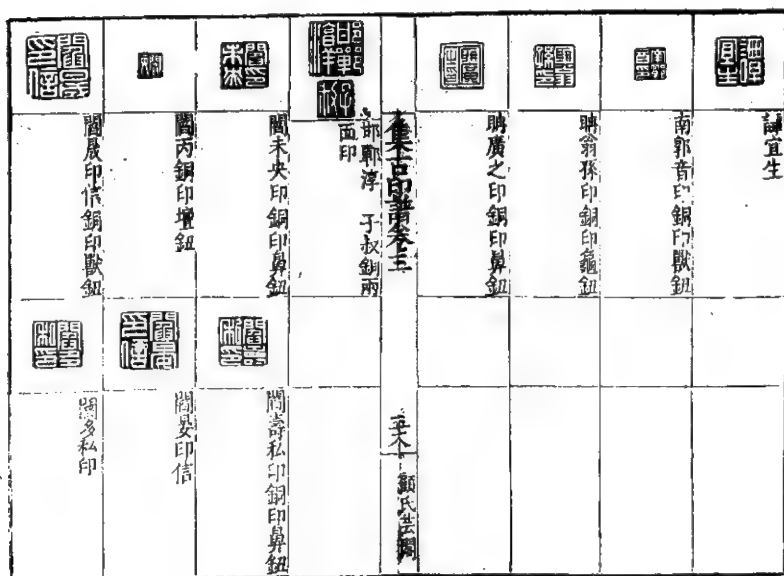 宜生
南郭音印銅印獸鈕
聃翁孫印銅印龜鈕
聃廣之印銅印鼻鈕
集古印譜卷三
顧氏芸閣
邯鄲淳 子叔銅兩
面印
閻未央印銅印鼻鈕
閻壽私印銅印鼻鈕
閻丙銅印壇鈕
閻晏印信
閻晟印信銅印獸鈕
閻多私印